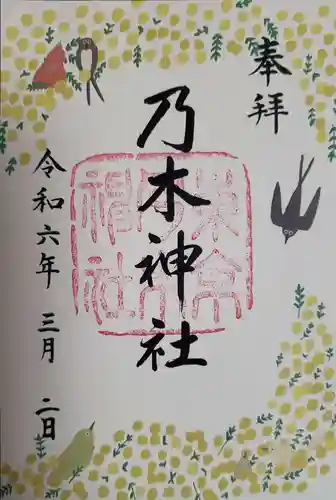 奉拝
乃木神社
令和六年 三月 二日